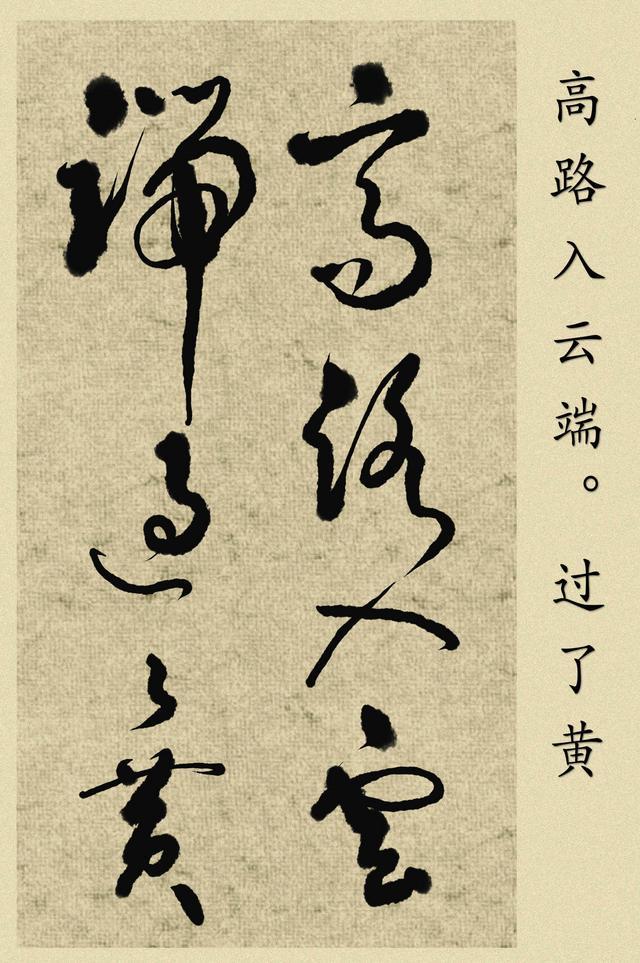 高路入云端。过了黄
高路入雲
端過了黄